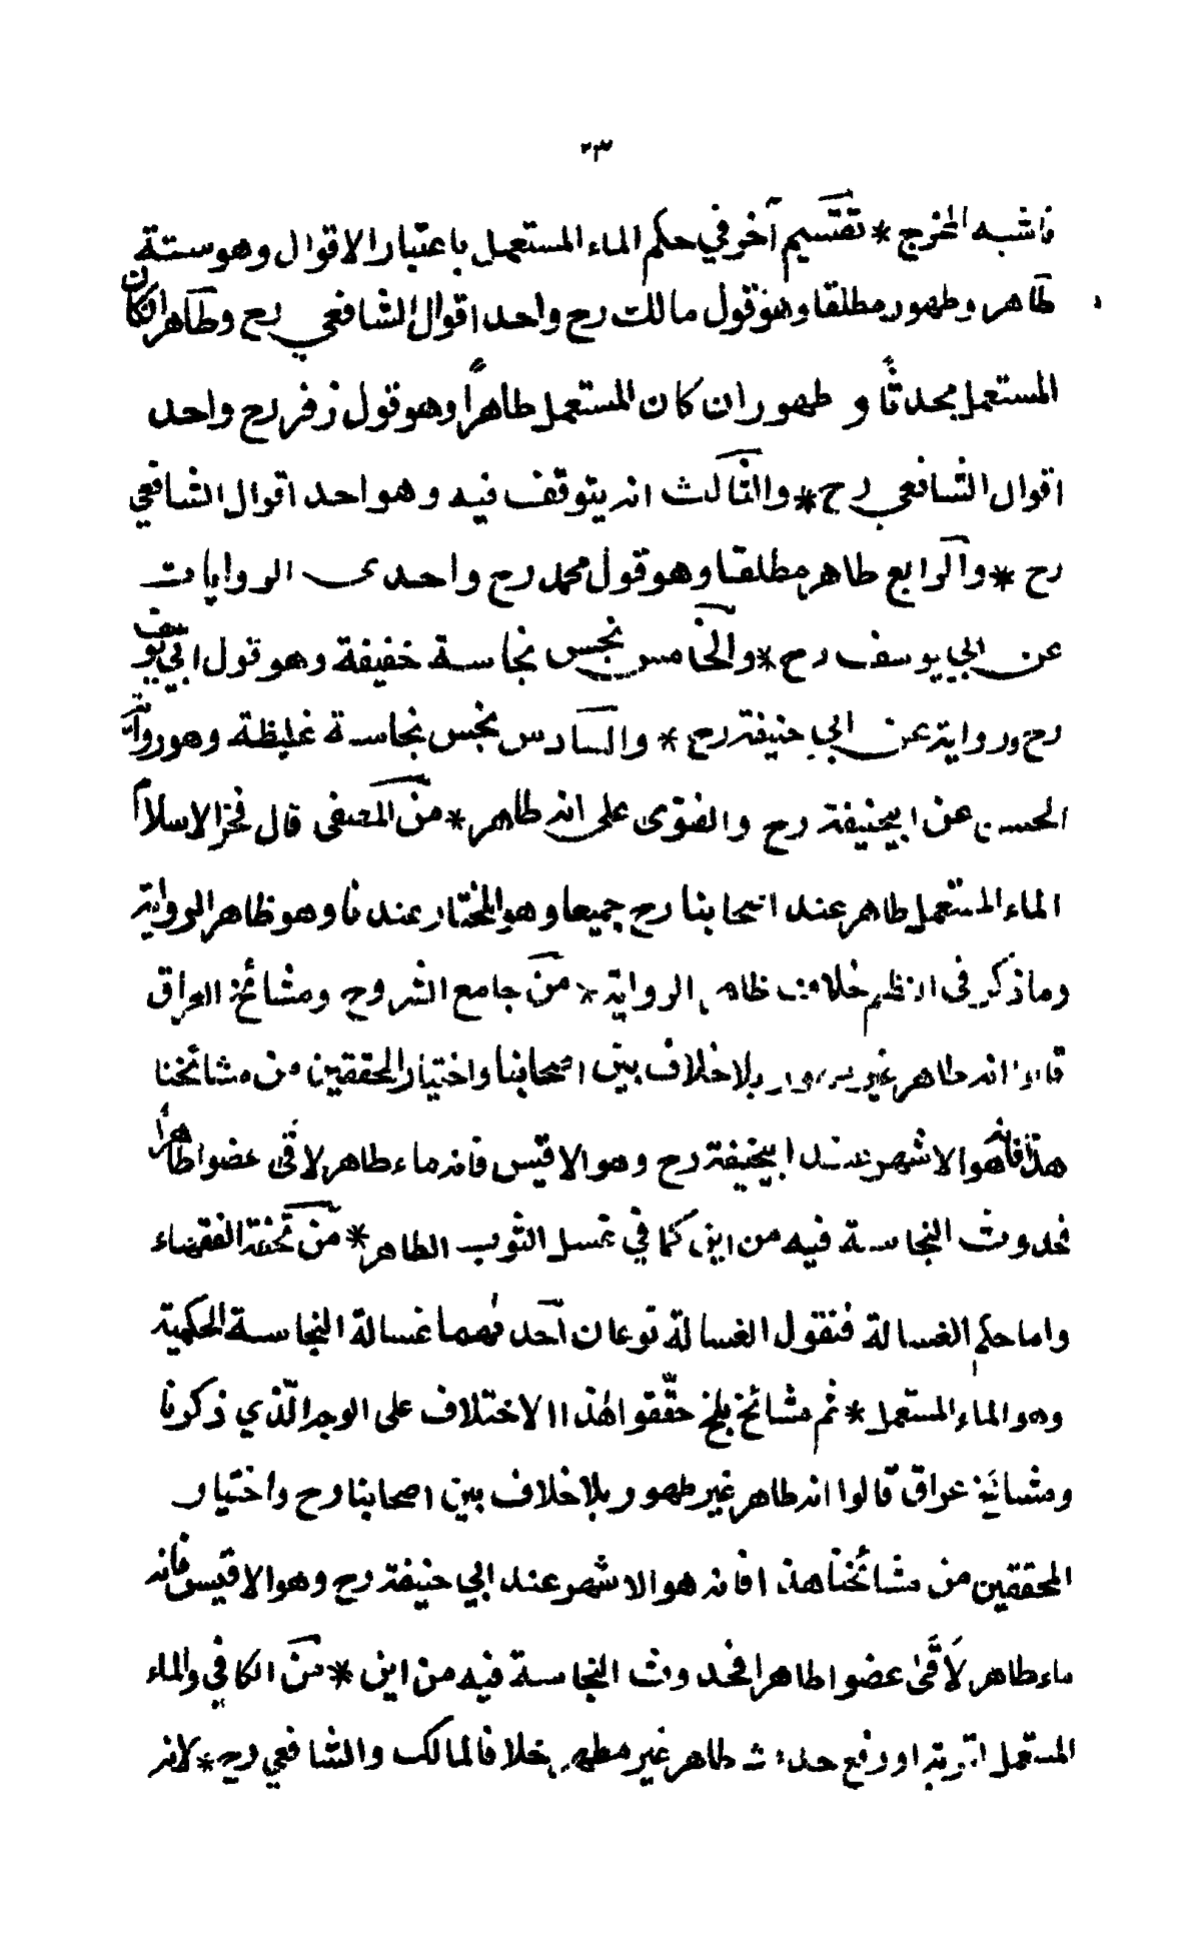 ٢٣
فاشبه المخرج * تقسيم آخر في حكم الماء المستعمل باعتبار الاقوال وهو ستة
طاهر وطهور مطلقا وهو قول مالك رح واحد اقوال الشافعي رح وطاهر ان كان
المستعمل محدثًا و طهور ان كان المستعمل طاهرًا وهو قول زفر رح واحد
اقوال الشافعي رح * والثالث انه يتوقف فيه وهو احد اقوال الشافعي
رح * والرابع طاهر مطلقا وهو قول محمد رح واحدى الروايات
عن ابي يوسف رح * والخامس نجس نجاسة خفيفة وهو قول ابي يوسف
رح ورواية عن ابي حنيفة رح * والسادس نجس نجاسة غليظة وهو رواية
الحسن عن ابيحنيفة رح والفتوى على انه طاهر * من المصفى قال فخر الاسلام
الماء المستعمل طاهر عند اصحابنا رح جميعا وهو المختار عندنا وهو ظاهر الرواية
وما ذكر في النظم خلاف ظاهر الرواية * من جامع الشروح ومشائخ العراق
قالوا انه طاهر غير طهور بلا خلاف بين اصحابنا واختيار المحققين من مشائخنا
هذا فانه هو الاشهر عند ابيحنيفة رح وهو الاقيس فانه ماء طاهر لاقى عضوا طاهرا
فحدوث النجاسة فيه من اين كما في غسل الثوب الطاهر * من تحفة الفقهاء
واما حكم الغسالة فنقول الغسالة نوعان احدهما غسالة النجاسة الحكمية
وهو الماء المستعمل * ثم مشائخ بلخ حققوا هذا الاختلاف على الوجه الّذي ذكرنا
ومشائخ عراق قالوا انه طاهر غير طهور بلا خلاف بين اصحابنا رح واختيار
المحققين من مشائخنا هذا فانه هو الاشهر عند ابي حنيفة رح وهو الاقيس فانه
ماء طاهر لاقى عضوا طاهرا فحدوث النجاسة فيه من اين * من الكافي والماء
المستعمل لقربة او رفع حدث طاهر غير مطهر خلافا لمالك والشافعي رح * لانه